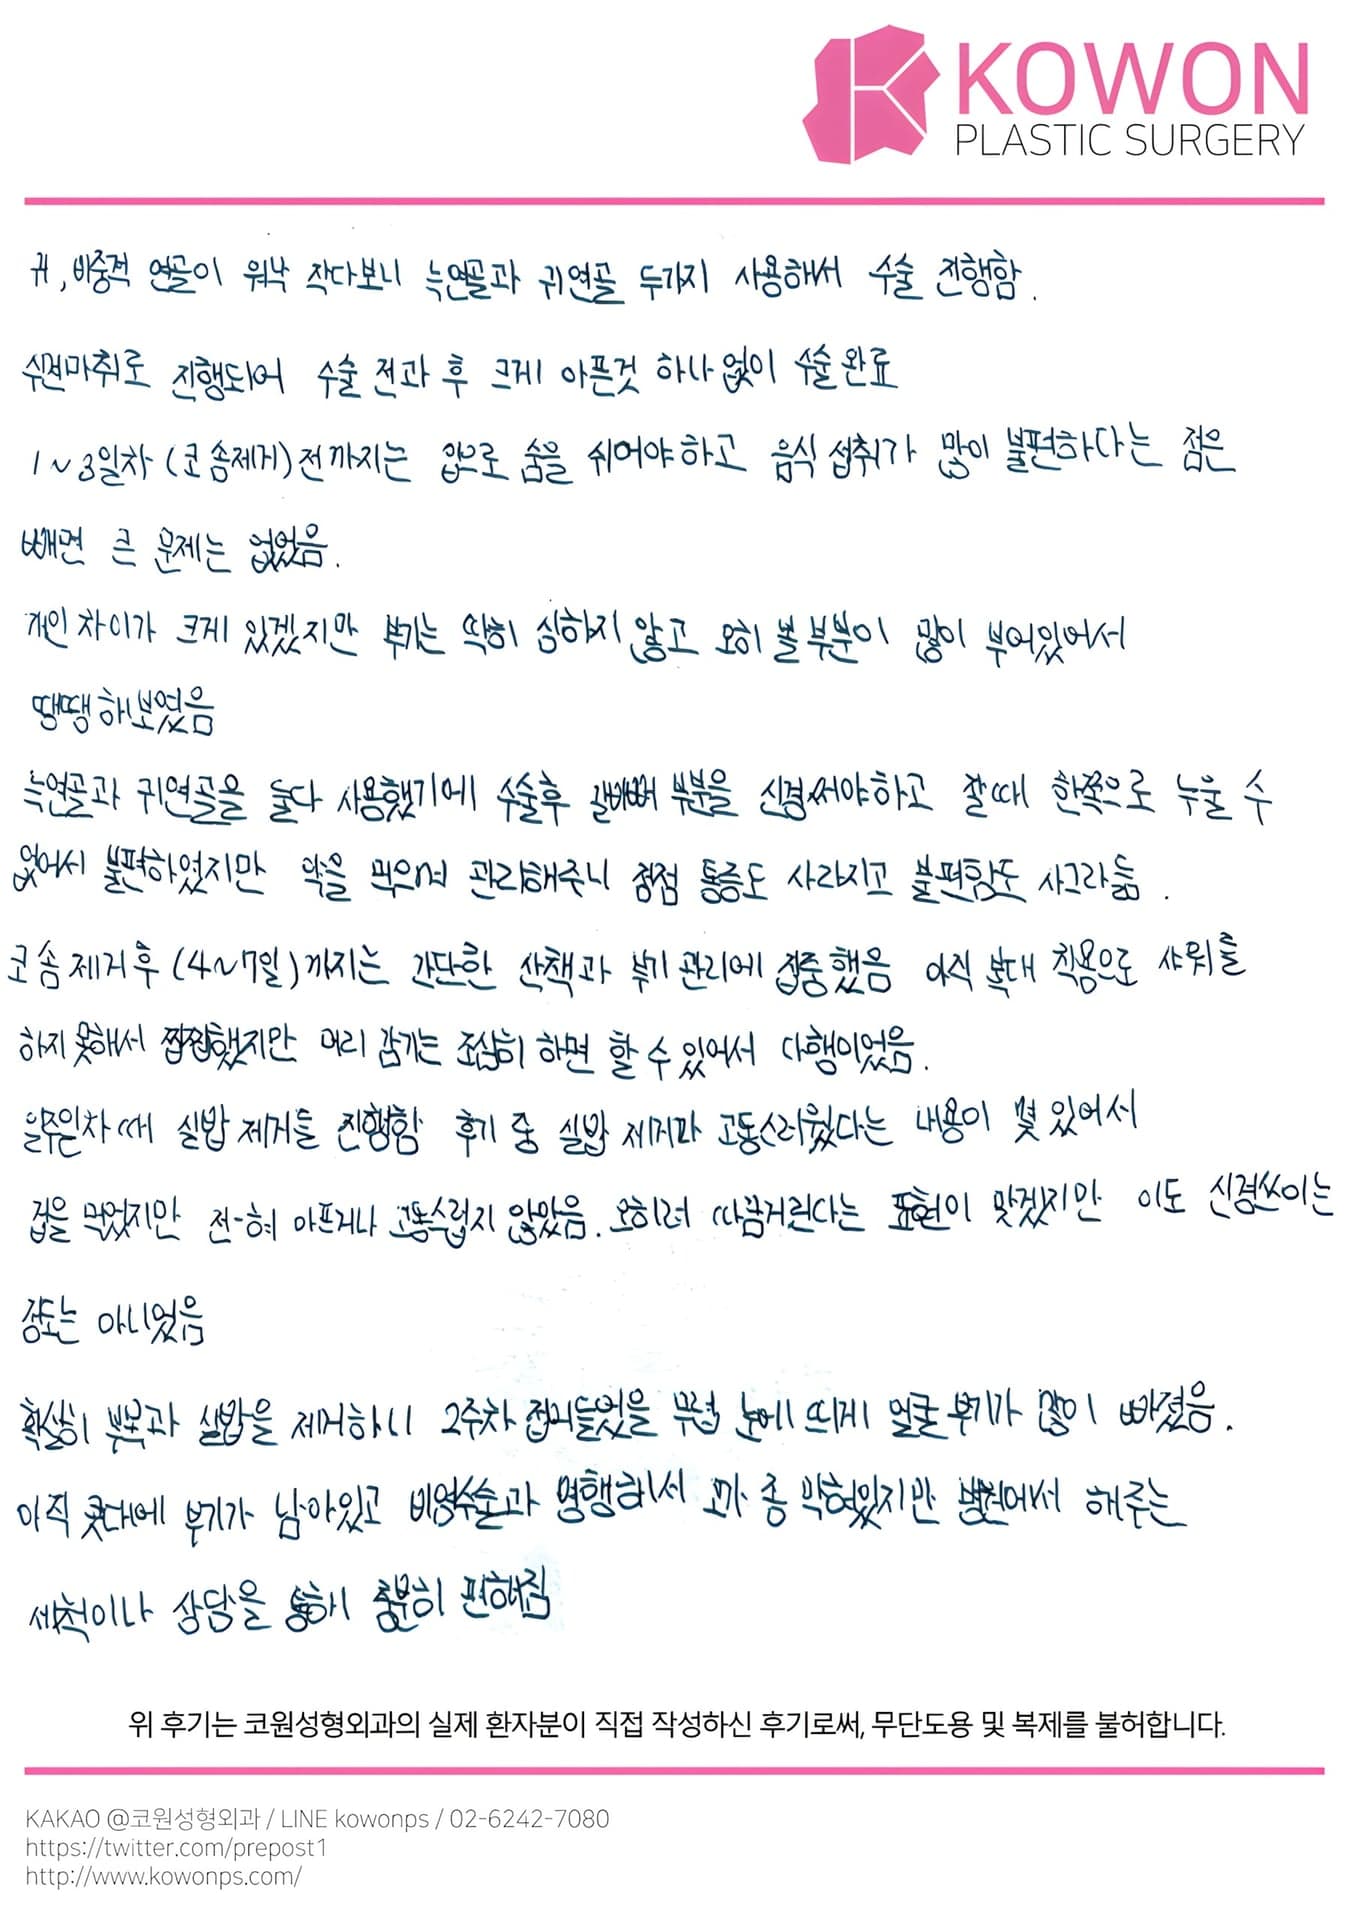 KOWON
PLASTIC SURGERY
귀, 비중격 연골이 워낙 작다보니 늑연골과 귀연골 두가지 사용해서 수술 진행함.
수면마취로 진행되어 수술 전과 후 크게 아픈것 하나 없이 수술 완료
1~3일차 (코 솜제거) 전까지는 입으로 숨을 쉬어야 하고 음식 섭취가 많이 불편하다는 점은
빼면 큰 문제는 없었음.
개인차이가 크게 있겠지만 붓기는 딱히 심하지 않고 오히 볼 부분이 많이 부어있어서
땡땡해보였음
늑연골과 귀연골을 둘다 사용했기에 수술후 갈비뼈 부분을 신경써야하고 잘때 한쪽으로 누울 수
없어서 불편하였지만 약을 먹으며 관리해주니 점점 통증도 사라지고 불편함도 사그라듦.
코 솜 제거 후 (4~7일)까지는 간단한 산책과 붓기 관리에 집중했음 아직 붕대 착용으로 샤워를
하지 못해서 찝찝했지만 머리 감기는 조심히 하면 할 수 있어서 다행이었음.
일주일차 때 실밥 제거를 진행함 후기 중 실밥 제거가 고통스러웠다는 내용이 몇 있어서
겁을 먹었지만 전-혀 아프거나 고통스럽지 않았음. 오히려 따끔거린다는 표현이 맞겠지만 이도 신경쓰이는
정도는 아니었음
확실히 부목과 실밥을 제거하니 2주차 접어들었을 무렵 눈에 띄게 얼굴 붓기가 많이 빠졌음.
아직 콧대에 붓기가 남아있고 비염수술과 병행해서 코가 좀 막혀있지만 병원에서 해주는
세척이나 상담을 통해 충분히 편해짐
위 후기는 코원성형외과의 실제 환자분이 직접 작성하신 후기로써, 무단도용 및 복제를 불허합니다.
KAKAO @코원성형외과 / LINE kowonps / 02-6242-7080
https://twitter.com/prepost1
http://www.kowonps.com/